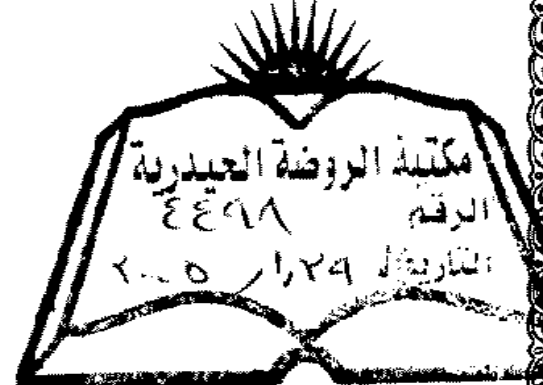 مكتبة الروضة الحيدرية
الرقم ٤٤٩٨
التاريخ ٢٠٠٥/١/٢٩